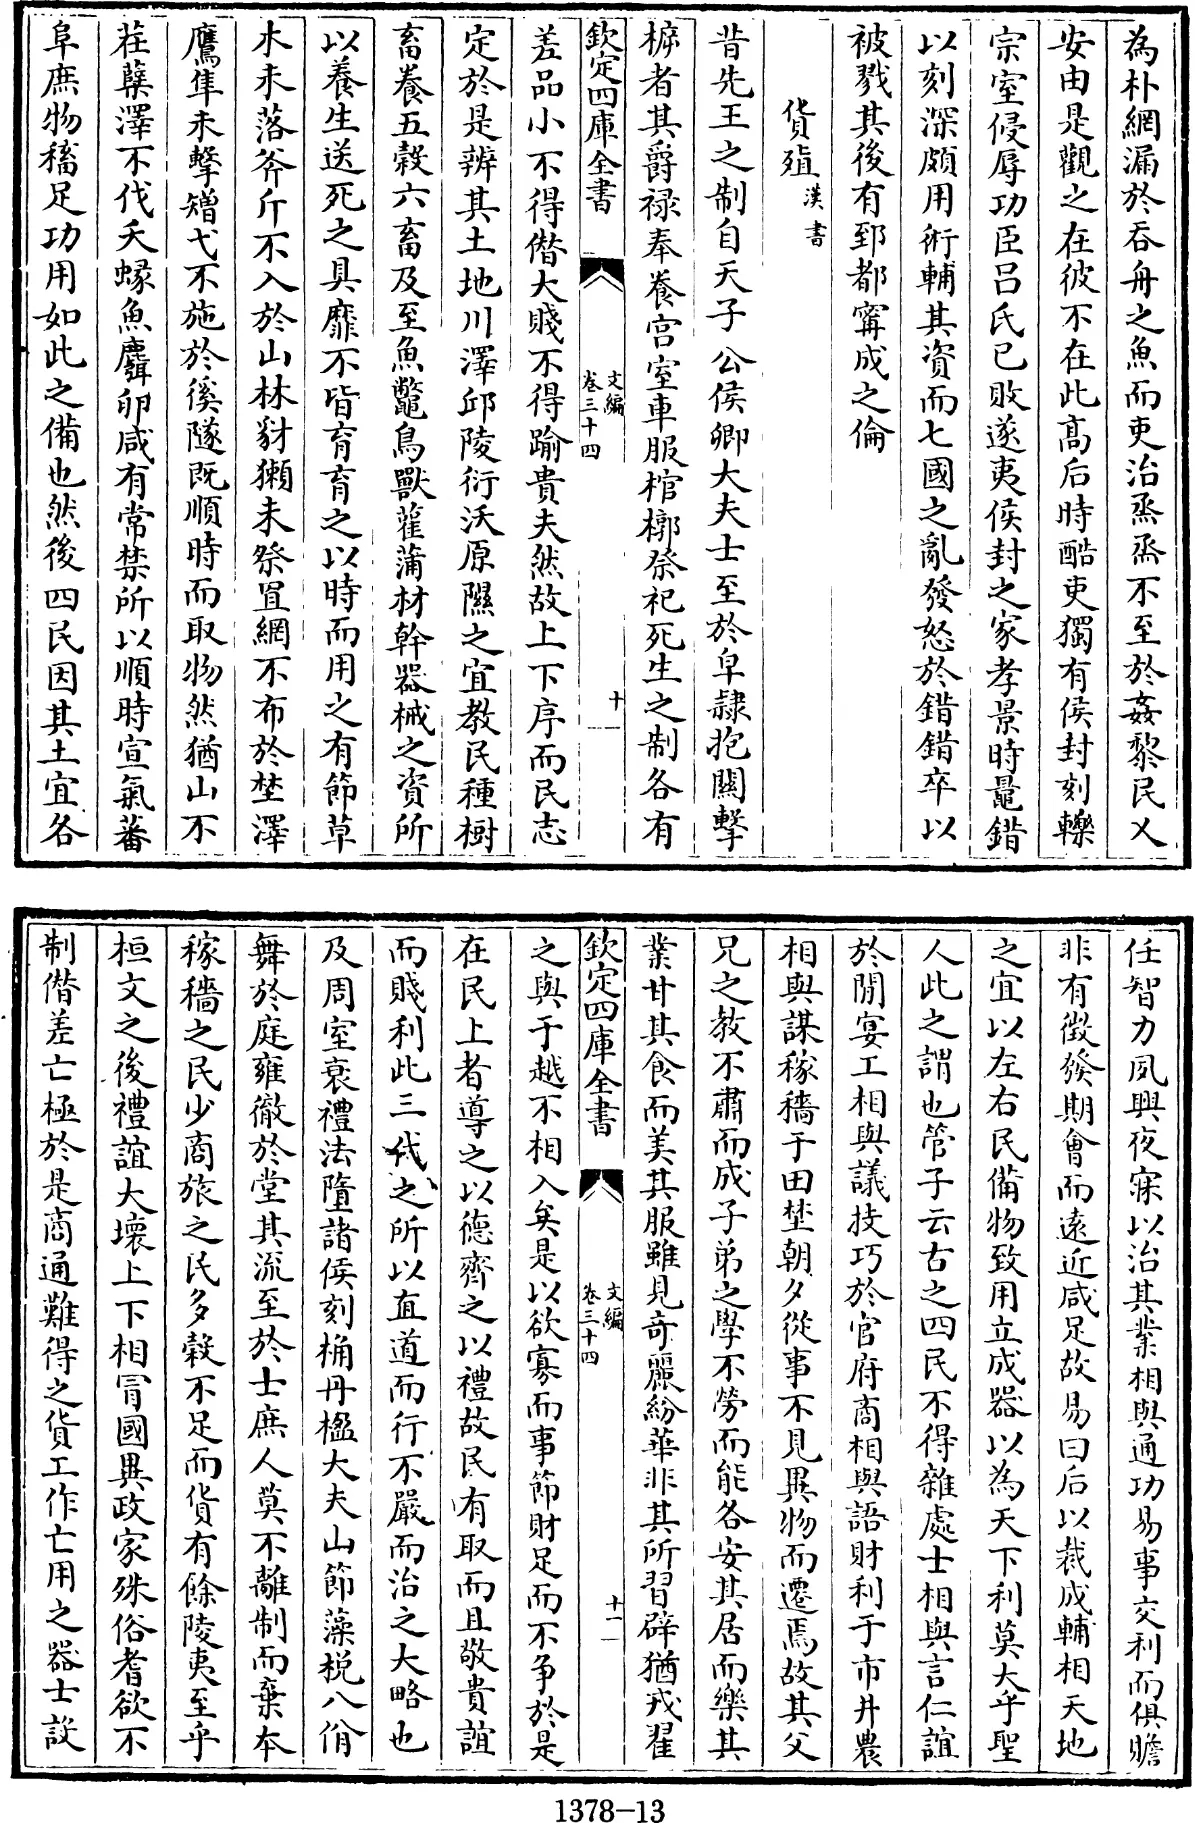 為朴網漏於吞舟之魚而吏治烝烝不至於姦黎民乂
安由是觀之在彼不在此髙后時酷吏獨有侯封刻轢
宗室侵辱功臣吕氏已敗遂夷侯封之家孝景時鼂錯
以刻深頗用術輔其資而七國之亂發怒於錯錯卒以
被戮其後有郅都寗成之倫
貨殖漢書
昔先王之制自天子公侯卿大夫士至於皁隷抱關擊
㯓者其爵禄奉養宫室車服棺槨祭祀死生之制各有
欽定四庫全書
文編
卷三十四
十
差品小不得僭大賤不得踰貴夫然故上下序而民志
定於是辨其土地川澤邱陵衍沃原隰之宜教民種樹
畜養五榖六畜及至魚鼈鳥獸雚蒲材幹器械之資所
以養生送死之具靡不皆育育之以時而用之有節草
木未落斧斤不入於山林豺獺未祭罝網不布於埜澤
鷹隼未擊矰弋不施於徯隧既順時而取物然猶山不
茬蘖澤不伐夭蝝魚麛卵咸有常禁所以順時宣氣蕃
阜庶物稸足功用如此之備也然後四民因其土宜各
任智力夙興夜寐以治其業相與通功易事交利而俱贍
非有徴發期會而逺近咸足故易曰后以裁成輔相天地
之宜以左右民備物致用立成器以為天下利莫大乎聖
人此之謂也管子云古之四民不得雜處士相與言仁誼
於閒宴工相與議技巧於官府商相與語財利于市井農
相與謀稼穡于田埜朝夕從事不見異物而遷焉故其父
兄之教不肅而成子弟之學不勞而能各安其居而樂其
業甘其食而美其服雖見奇麗紛華非其所習辟猶戎翟
欽定四庫全書
文編
卷三十四
十一
之與于越不相入矣是以欲寡而事節財足而不争於是
在民上者導之以德齊之以禮故民有取而且敬貴誼
而賤利此三代之所以直道而行不嚴而治之大略也
及周室衰禮法隳諸侯刻桷丹楹大夫山節藻梲八佾
舞於庭雍徹於堂其流至於士庶人莫不離制而棄本
稼穡之民少商旅之民多榖不足而貨有餘陵夷至乎
桓文之後禮誼大壞上下相冐國異政家殊俗耆欲不
制僭差亡極於是商通難得之貨工作亡用之器士設
1378-13